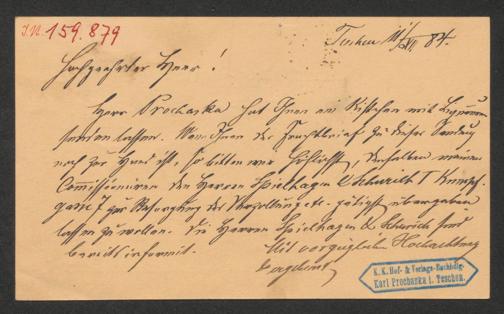 I.N. 159.879
Teschen 11/XII 84.
Hochgeehrter Herr!
Herr Prochaska hat Ihnen ein Kistchen mit
senden lassen. Wenn Ihnen der Frachtbrief zu dieser Sendung
noch zur Hand ist, so bitten wir höflichst, denselben meinen
Commissionären den Herren Spielhagen & Schurich I
gasse 7 zur Besorgung der Verzollung etc. gütigst übergeben
lassen zu wollen. Die Herren Spielhagen & Schurich sind
bereits informirt.
Mit vorzüglicher Hochachtung
ergebenst
K. K. Hof- & Verlags-Buchhdlg.
Karl Prochaska i. Teschen.